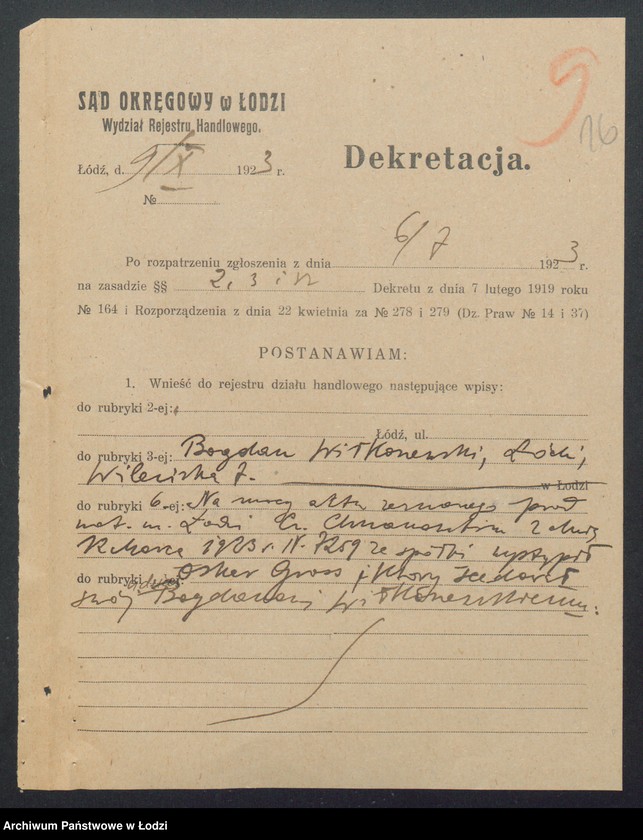 SĄD OKRĘGOWY w ŁODZI
Wydział Rejestru Handlowego.
9
16
Dekretacja.
Łódź, d. 9/X 1923 r.
№
Po rozpatrzeniu zgłoszenia z dnia 6/7 1923 r.
na zasadzie §§ 2, 3 i Dekretu z dnia 7 lutego 1919 roku
№ 164 i Rozporządzenia z dnia 22 kwietnia za № 278 i 279 (Dz. Praw № 14 i 37)
POSTANAWIAM:
1. Wnieść do rejestru działu handlowego następujące wpisy:
do rubryki 2-ej:
Łódź, ul.
do rubryki 3-ej: Bogdan Witkonewski, Łódź,
7. w Łodzi
do rubryki 6-ej: Na mocy aktu zeznanego przed
not. m. Łodzi z dnia
marca 1923 r. № 7259 ze spółki wystąpił
do rubryki Oskar Gross, który scedował
swój udział Bogdanowi Witkonewskiemu.
Archiwum Państwowe w Łodzi